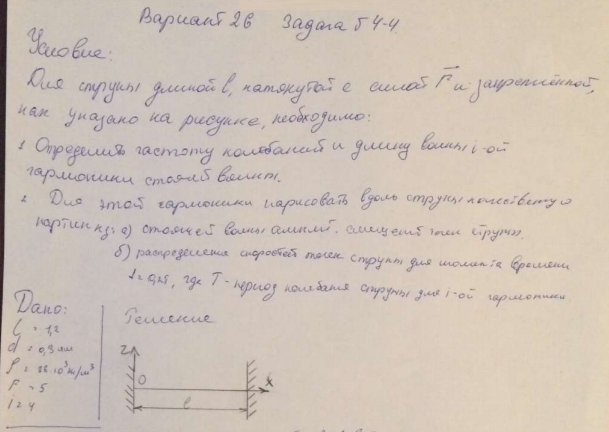 Вариант 26 Задача 5 4-4.
Условие:
Для струны длиной l, натянутой с силой F и закреплённой,
как указано на рисунке, необходимо:
1 Определить частоту колебаний и длину волны i-ой
гармоники стоячей волны.
2 Для этой гармоники нарисовать вдоль струны качественную
картинку: а) стоячей волны амплит. смещений точек струны
б) распределения скоростей точек струны для момента времени
где T - период колебания струны для i-ой гармоники.
Дано:
Решение
l = 1,2
d = 0,3 мм
F = 5
i = 4
Z
O
X
l